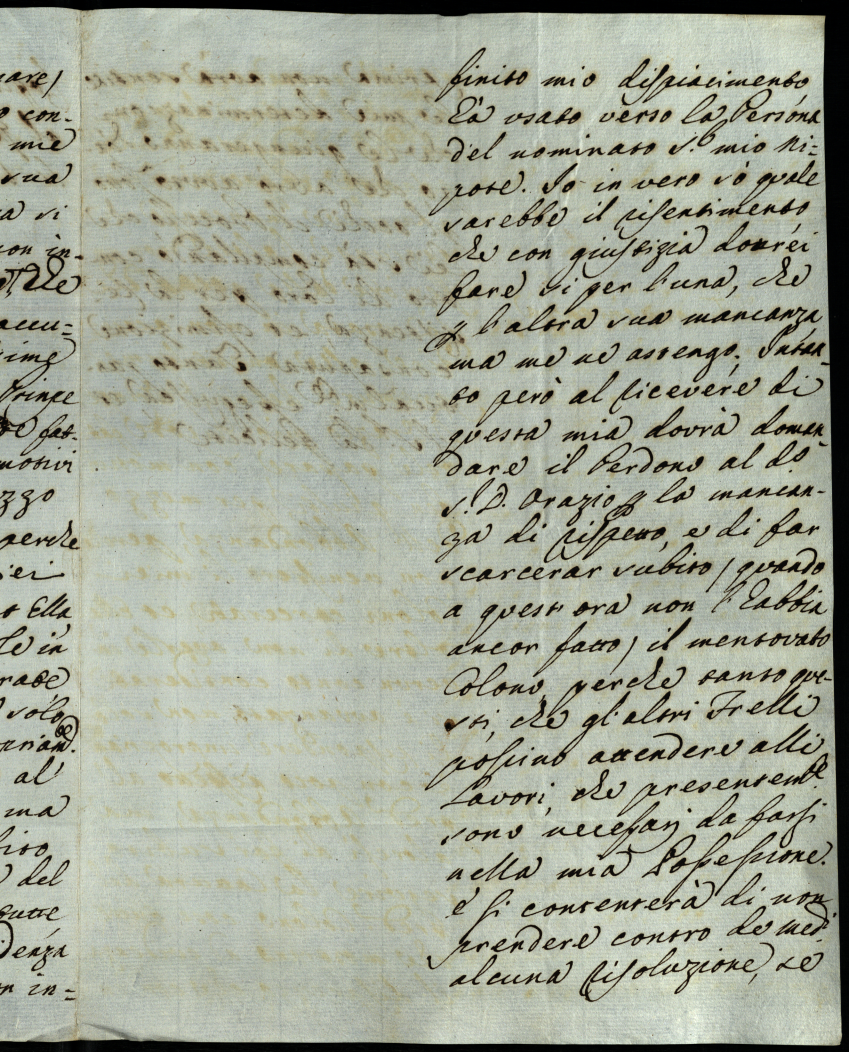 nare)
o con-
mie
sua
ra si
con in-
che
accu-
sime
Prinpe
fat-
motivi
zzo
perche
iei
to Ella
le in
rate
solo
priam.te
al
ma
sito
del
tutte
denza
n in=
finito mio dispiacimento
ha usato verso la Persona
del nominato S.r mio Ni=
pote. Io in vero sò quale
sarebbe il risentimento
che con giustizia dovrei
fare si per l'una, che
p l'altra sua mancanza,
ma me ne astengo. Intan-
to però al ricevere di
questa mia dovrà doman
dare il Perdono al d.o
S.r D. Orazio p la mancan-
za di rispetto, e di far
scarcerar subito (quando
a quest'ora non l'habbia
ancor fatto) il mentovato
Colono, perche tanto que-
sti, che gl'altri Frelli
possino attendere alli
Lavori, che presentem.te
sono necessarj da farsi
nella mia Possessione.
e si contenterà di non
prendere contro de med.i
alcuna risoluzione, se